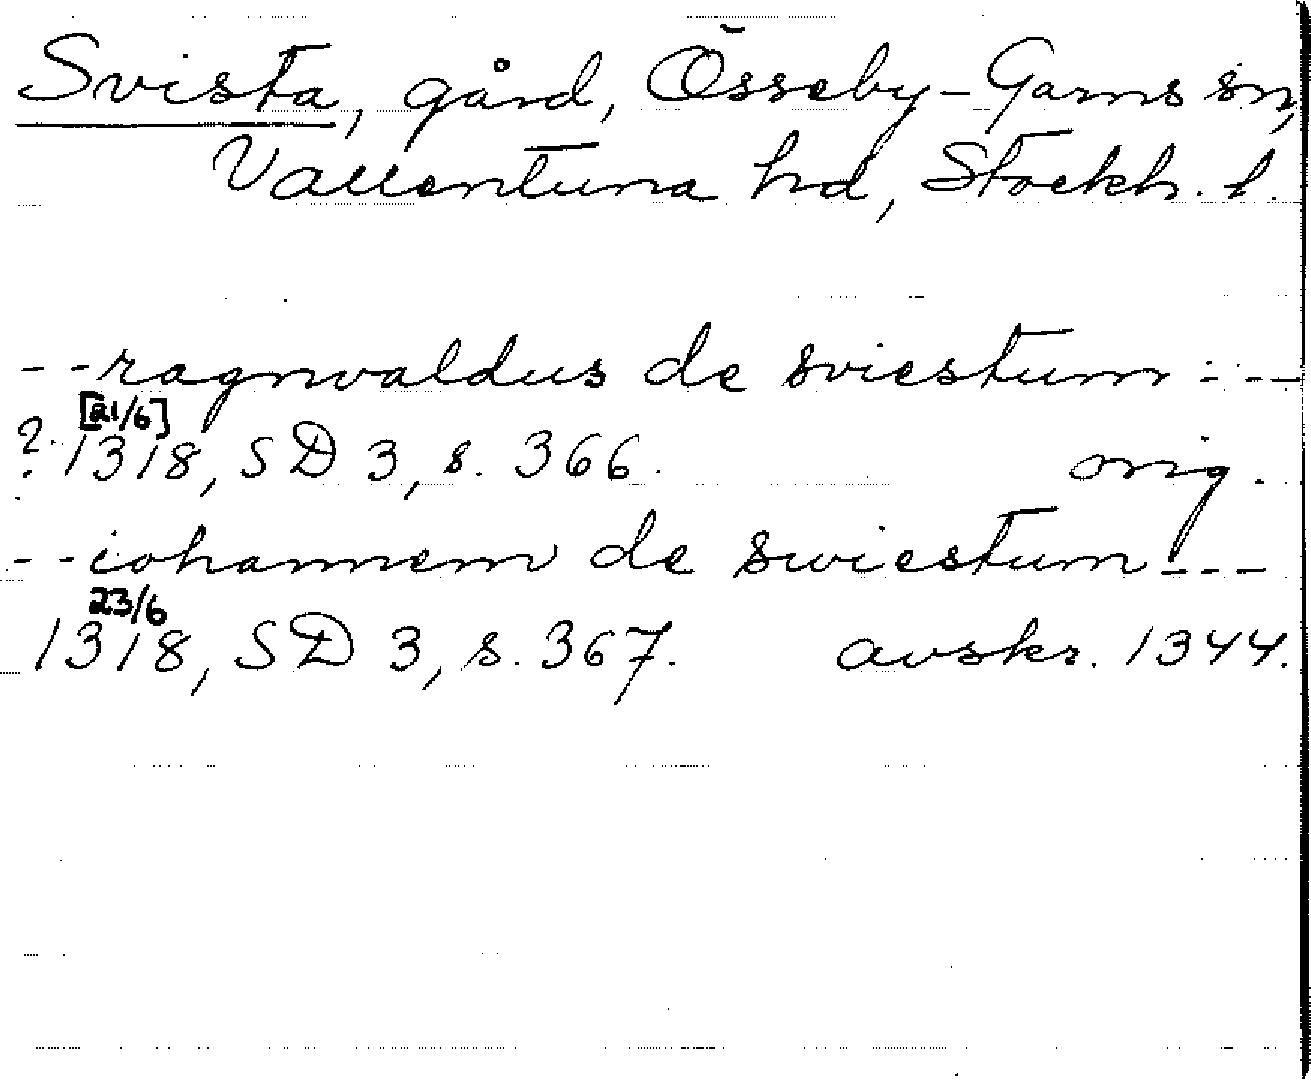 Svista, gård, Össeby-Garns sn,
Vallentuna hd, Stockh. l.
- - ragnvaldus de sviestum - - -
[21/6]
? 1318, SD 3, s. 366. orig.
- - iohannem de swiestum - - -
23/6
1318, SD 3, s. 367. avskr. 1344.